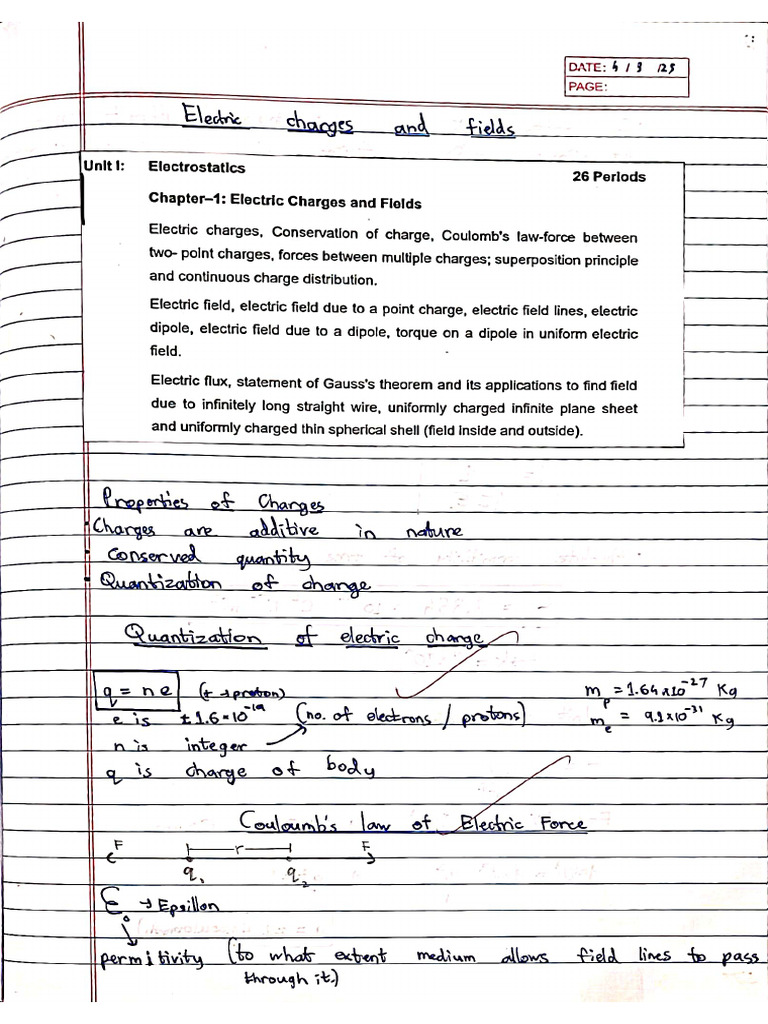 DATE: 4 / 3 / 25
PAGE:
Electric charges and fields
Unit I: Electrostatics
26 Periods
Chapter–1: Electric Charges and Fields
Electric charges, Conservation of charge, Coulomb's law-force between
two- point charges, forces between multiple charges; superposition principle
and continuous charge distribution.
Electric field, electric field due to a point charge, electric field lines, electric
dipole, electric field due to a dipole, torque on a dipole in uniform electric
field.
Electric flux, statement of Gauss's theorem and its applications to find field
due to infinitely long straight wire, uniformly charged infinite plane sheet
and uniformly charged thin spherical shell (field inside and outside).
Properties of Charges
• Charges are additive in nature
• Conserved quantity
• Quantization of change
Quantization of electric charge
q = n e (+ → proton) mp = 1.64 x 10⁻²⁷ Kg
e is ± 1.6 × 10⁻¹⁹ (no. of electrons / protons) me = 9.1 x 10⁻³¹ Kg
n is integer
q is charge of body
Couloumb's law of Electric Force
F r F
q₁ q₂
ε₀ → Epsillon
permitivity (to what extent medium allows field lines to pass
through it.)